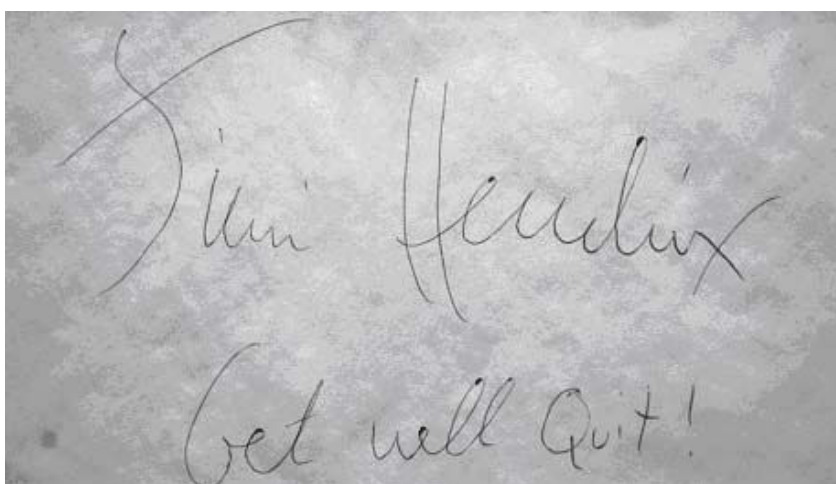 Jimi Hendrix
Get well Quit!